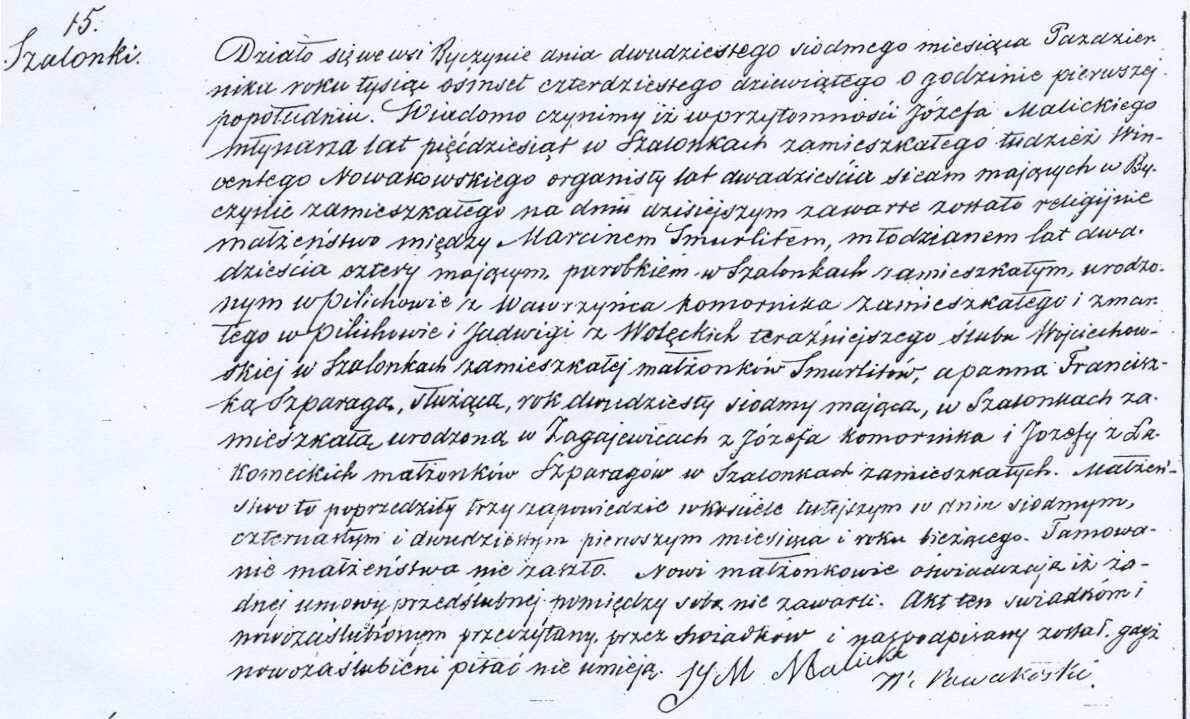 15.
Szalonki.
Działo się we wsi Byczynie dnia dwudziestego siodmego miesiąca Pazdzier
nika roku tysiąc ośinset czterdziestego dziewiątego o godzinie pierwszej
popołudniu. Wiadomo czynimy iż w przytomności Józefa Malickiego
młynarza lat pięćdziesiąt w Szalonkach zamieszkałego tudzież Win-
centego Nowakowskiego organisty lat dwadzieścia siedm mających w By-
czynie zamieszkałego na dniu dzisiejszym zawarte zostało religijne
małżeństwo między Marcinem Smurlitem, młodzianem lat dwa-
dzieścia cztery mającym, parobkiem w Szalonkach zamieszkałym, urodzo-
nym w Pilichowie z Wawrzyńca komornika zamieszkałego i zmar
łego w Pilichowie i Jadwigi z Wolęckich teraźniejszego ślubu Wojciechow-
skiej w Szalonkach zamieszkałej małżonków Smurlitów, a panną Francisz-
ką Szparagą, służącą, rok dwudziesty siodmy mającą, w Szalonkach za-
mieszkałą, urodzoną w Zagajewicach z Józefa komornika i Jozefy z La-
komeckich małżonków Szparagów w Szalonkach zamieszkałych. Małżeń-
stwo to poprzedziły trzy zapowiedzie w kościele tutejszym w dniu siodmym,
czternastym i dwudziestym pierwszym miesiąca i roku bieżącego. Tamowa-
nie małżeństwa nie zaszło. Nowi małżonkowie oświadczają iż ża-
dnej umowy przedślubnej pomiędzy sobą nie zawarli. Akt ten świadkóm i
nowozaślubionym przeczytany, przez świadków i nas podpisany został, gdyż
nowozaślubieni pisać nie umieją.